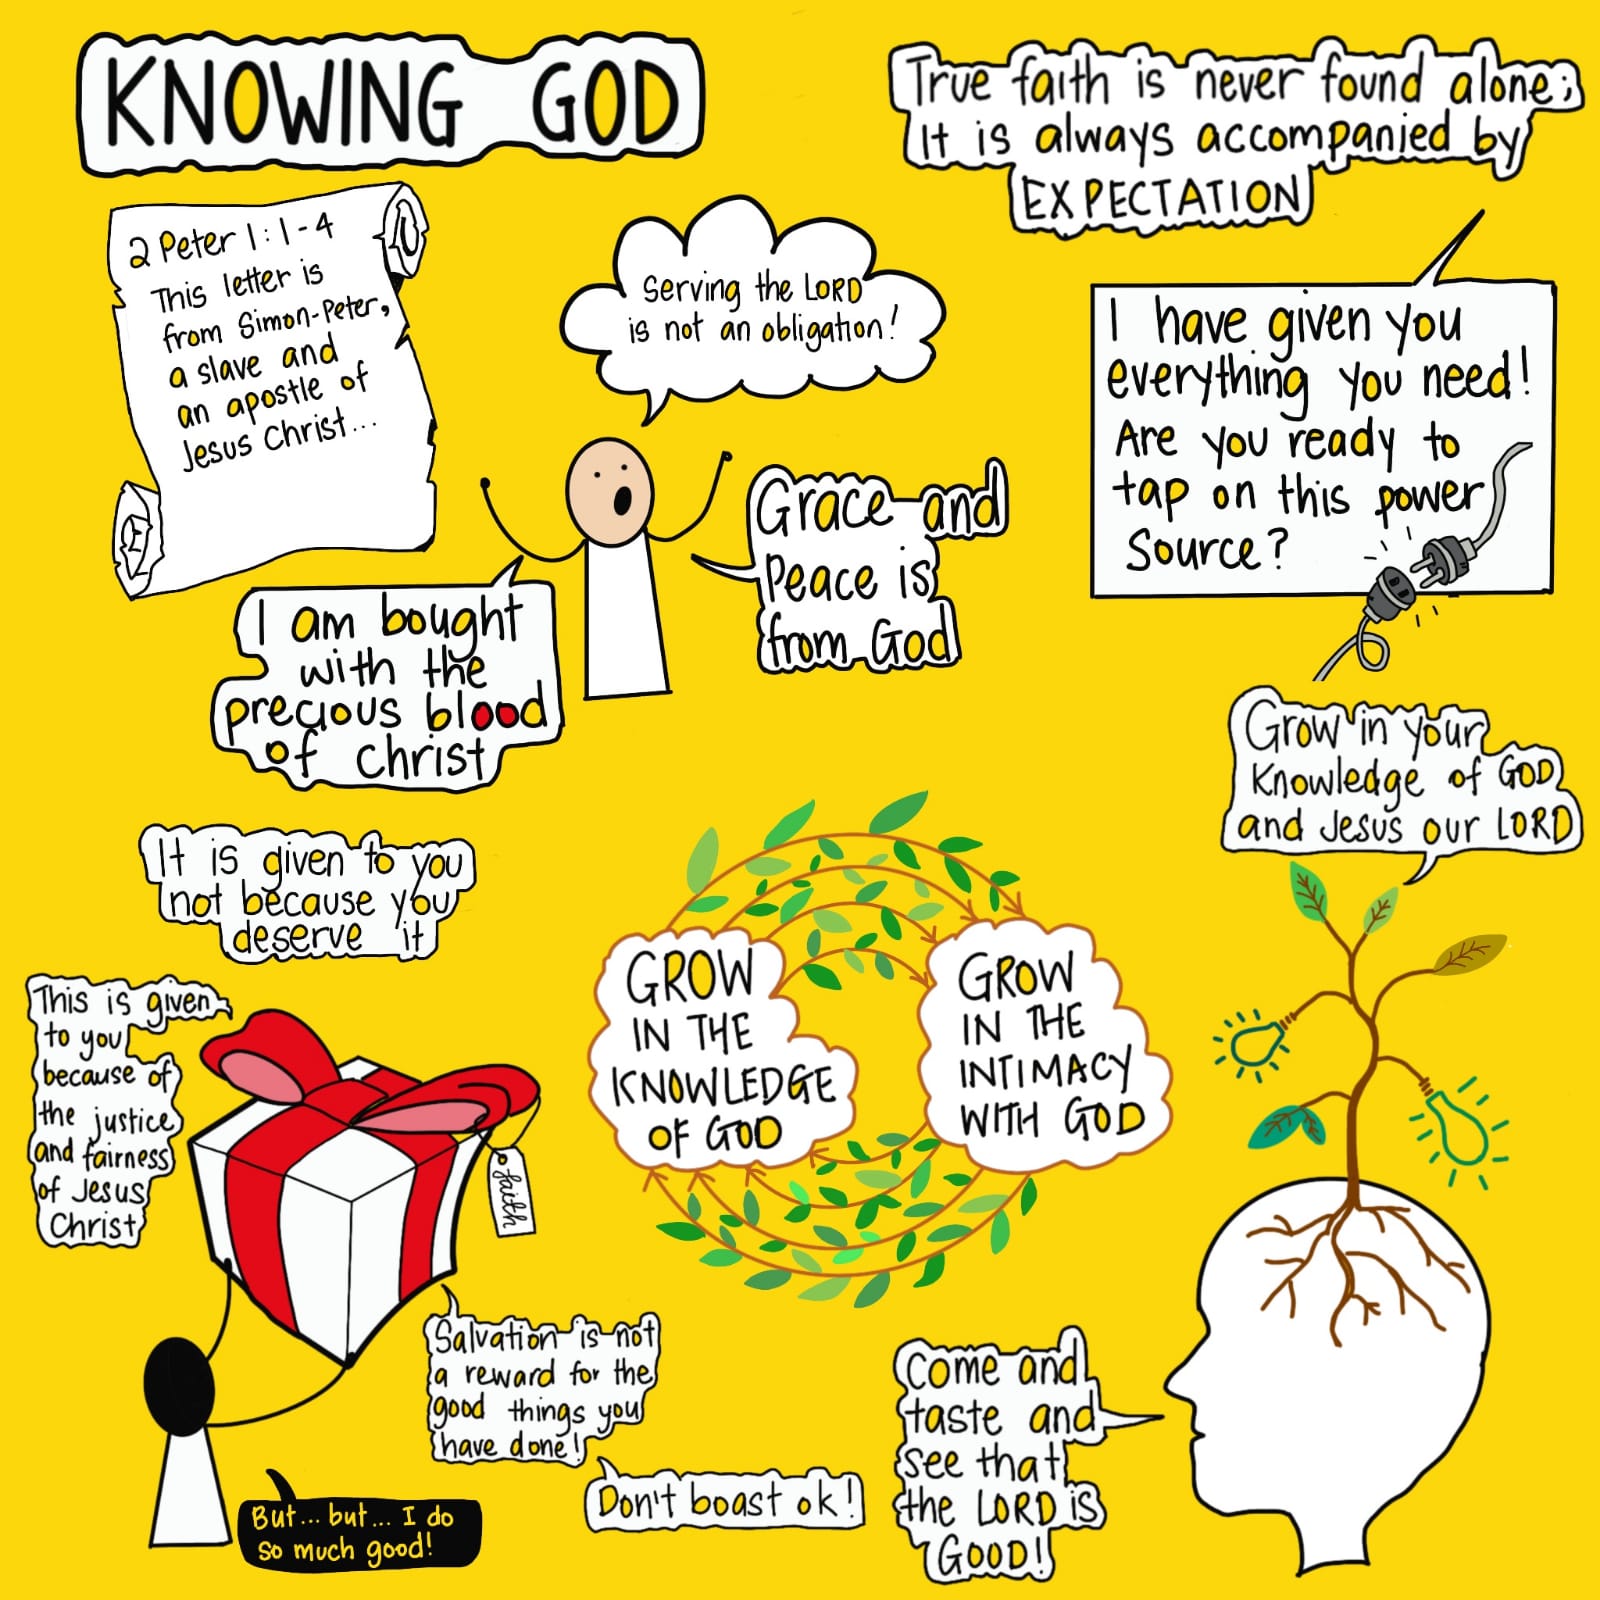 KNOWING GOD
True faith is never found alone;
It is always accompanied by
EXPECTATION
2 Peter 1:1-4
This letter is
from Simon-Peter,
a slave and
an apostle of
Jesus Christ...
Serving the LORD
is not an obligation!
I have given you
everything you need!
Are you ready to
tap on this power
source?
Grace and
Peace is
from God
I am bought
with the
precious blood
of christ
Grow in your
Knowledge of GOD
and Jesus our LORD
It is given to you
not because you
deserve it
This is given
to you
because of
the justice
and fairness
of Jesus
Christ
faith
GROW
IN THE
KNOWLEDGE
OF GOD
GROW
IN THE
INTIMACY
WITH GOD
Salvation is not
a reward for the
good things you
have done!
But... but... I do
so much good!
Don't boast ok!
Come and
taste and
see that
the LORD is
GOOD!